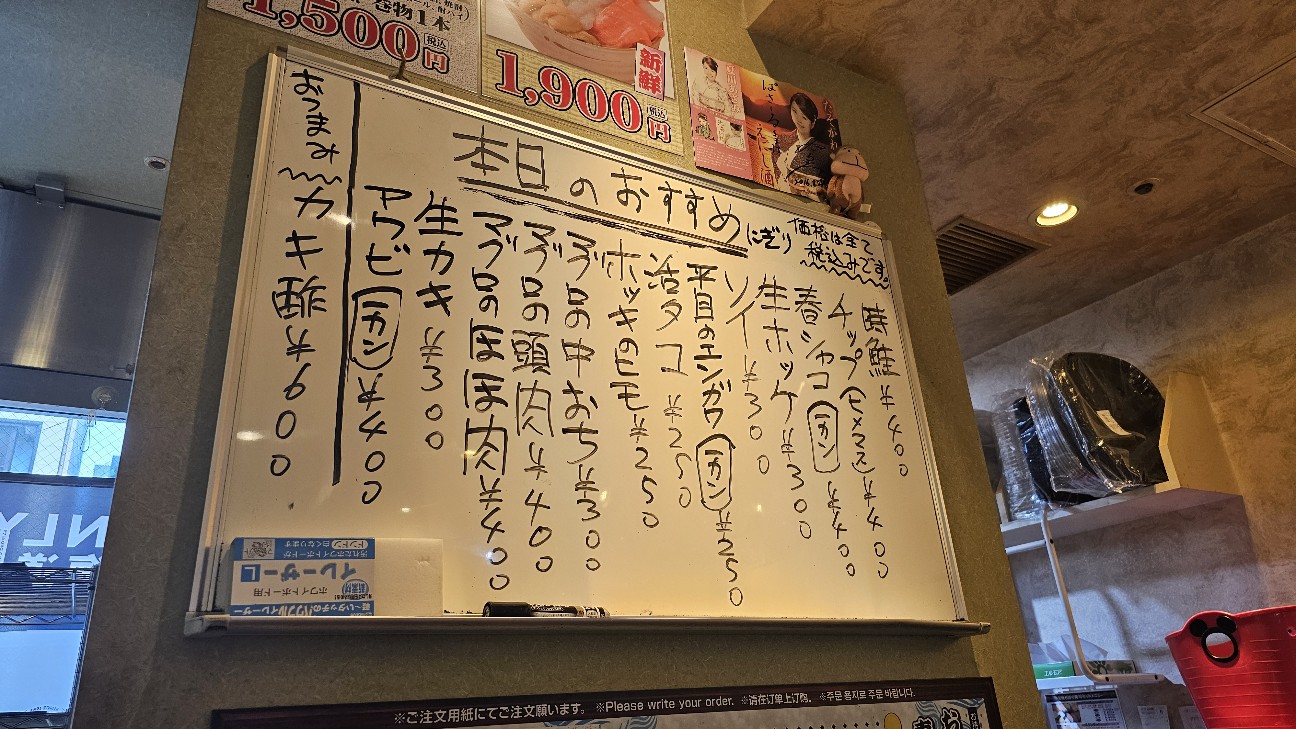 1,500円
税込
巻物1本
1,900円
税込
新鮮
本日のおすすめ
にぎり
価格は全て
税込みです。
時鮭 ¥400
チップ(ヒメマス) ¥400
春シャコ(一カン) ¥400
生ホッケ ¥300
ソイ ¥300
平目のエンガワ(一カン) ¥250
活タコ ¥250
ホッキのヒモ ¥250
マグロの中おち ¥300
マグロの頭肉 ¥400
マグロのほほ肉 ¥400
生カキ ¥300
アワビ(一カン) ¥400
おつまみ
カキ酢 ¥900
イレーザー L
ホワイトボード用
※ご注文用紙にてご注文願います。 ※Please write your order. ※请在订单上订购。 ※주문 용지로 주문 바랍니다.